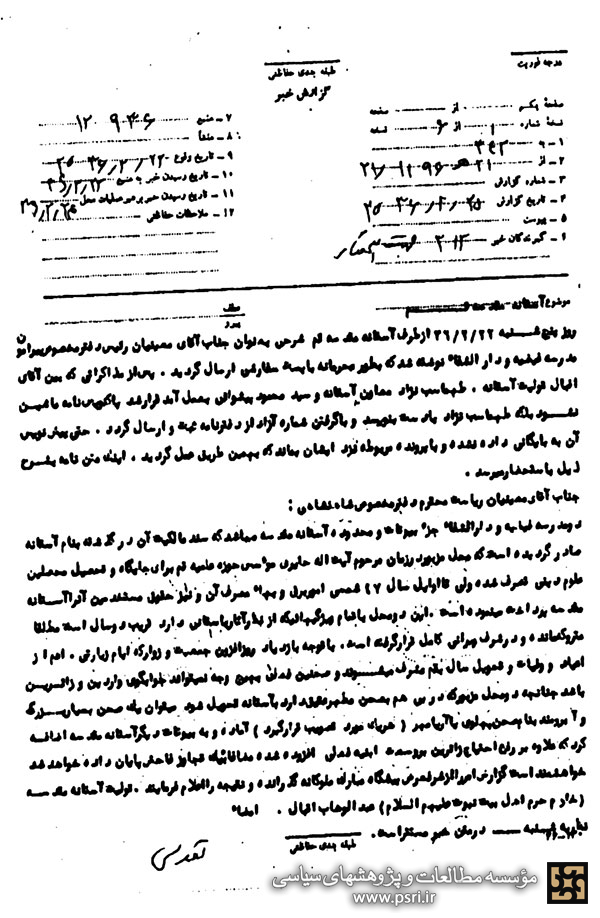 درجه فوریت
طبقه بندی حفاظتی
گزارش خبر
صفحه یکم از صفحه
نسخه شماره ۱ از ۶ نسخه
۱ـ به ۳۴۳
۲ـ از ۲۱ هـ
۳ـ شماره گزارش
۴ـ تاریخ گزارش
۵ـ پیوست
۶ـ گیرندگان خبر
۷ـ منبع ۱۲۰۹۴۶
۸ـ منشأ
۹ـ تاریخ وقوع ۲۵۳۶/۲/۲۲
۱۰ـ تاریخ رسیدن خبر به منبع
۱۱ـ تاریخ رسیدن خبر به رهبر عملیات محل
۱۲ـ ملاحظات حفاظتی
موضوع آستانه مقدسه قم
روز پنج شنبه ۳۶/۲/۲۲ از طرف آستانه مقدسه قم شرحی به عنوان جناب آقای معینیان رئیس دفتر مخصوص پیرامون
مدرسه فیضیه و دارالشفاء نوشته شد که بطور محرمانه با پست سفارشی ارسال گردید . پس از مذاکراتی که بین آقای
اقبال تولیت آستانه . طهماسب نژاد معاون آستانه و سید محمود پیشوائی بعمل آمد قرار شد پاکنویس نامه ماشین
نشود بلکه طهماسب نژاد با دست بنویسد و با گرفتن شماره آزاد از دفتر نامه ثبت و ارسال گردد . حتی پیش نویس
آن به بایگانی داده نشده و با پرونده مربوطه نزد ایشان بماند که بهمین طریق عمل گردید . اینک متن نامه بشرح
ذیل باستحضار میرسد .
جناب آقای معینیان ریاست محترم دفتر مخصوص شاهنشاهی :
دو مدرسه فیضیه و دارالشفاء جزء بیوتات و محدوده آستانه مقدسه میباشد که سند مالکیت آن در گذشته بنام آستانه
صادر گردیده است که محل مزبور در زمان مرحوم آیت اله حایری مؤسس حوزه علمیه قم برای جایگاه و تحصیل محصلین
علوم دینی تصرف شده ولی تا اوایل سال ۲۷ شمسی امور برق و بهاء مصرف آن و نیز حقوق مستخدمین آنرا آستانه
مقدسه پرداخت مینموده است . این دو محل با تمام ویژگیهائیکه از نظر آثار باستانی دارد قریب دو سال است مطلقا
متروک مانده و در شرف ویرانی کامل قرار گرفته است . با توجه بازدیاد روزافزون جمعیت و زوار که ایام زیارتی . اعم از
اعیاد و وفیات و تحویل سال بقم مشرف میشوند و صحنین فعلی بهیچ وجه نمیتواند جوابگوی واردین و زائرین
باشد چنانچه دو محل مزبور که در بی هم بصحن مطهر عتیق دارد بآستانه تحویل شود میتوان یک صحن بسیار بزرگ
و آبرومند بنام صحن پهلوی یا آریامهر ( هریک مورد تصویب قرار گیرد ) آماده و به بیوتات دیگر آستانه مقدسه اضافه
کرد که علاوه بر رفع احتیاج زائرین بر وسعت ابنیه فعلی افزوده شده
خواهشمند است گزارش امر را از شرفعرض پیشگاه مبارک ملوکانه گذرانده و نتیجه را اعلام فرمایند . تولیت آستانه مقدسه
( خادم حرم اهل بیت نبوت علیهم السلام ) عبدالوهاب اقبال . امضاء
نظریه شنبه ـ در متن خبر مستتر است .
طبقه بندی حفاظتی
تقدسی
مؤسسه مطالعات و پژوهشهای سیاسی
www.psri.ir